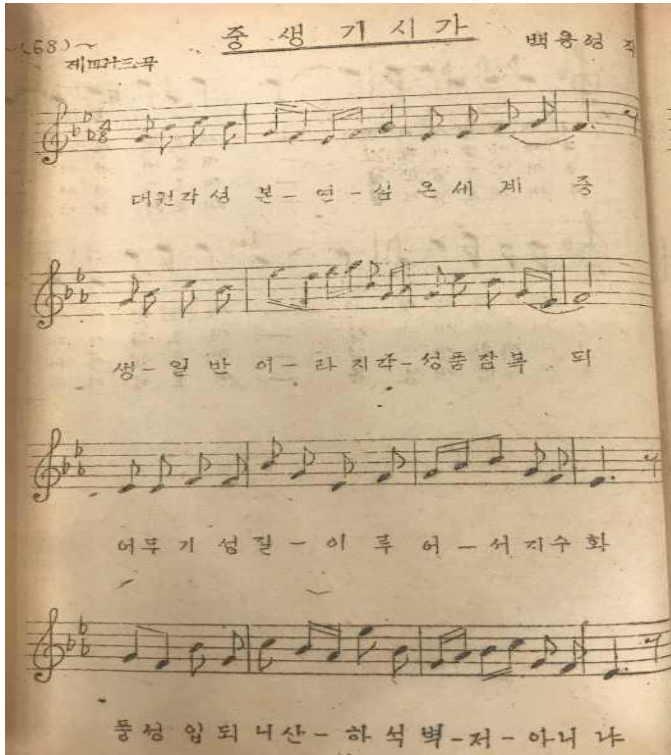 (68)~
중생기시가
백용성 작
대원각성 본-연-심 온세계 중
생-일반이-라지각-성품잠복 되
어무기성질-이루어-서지수화
풍성입되니산-하석벽-저-아니냐